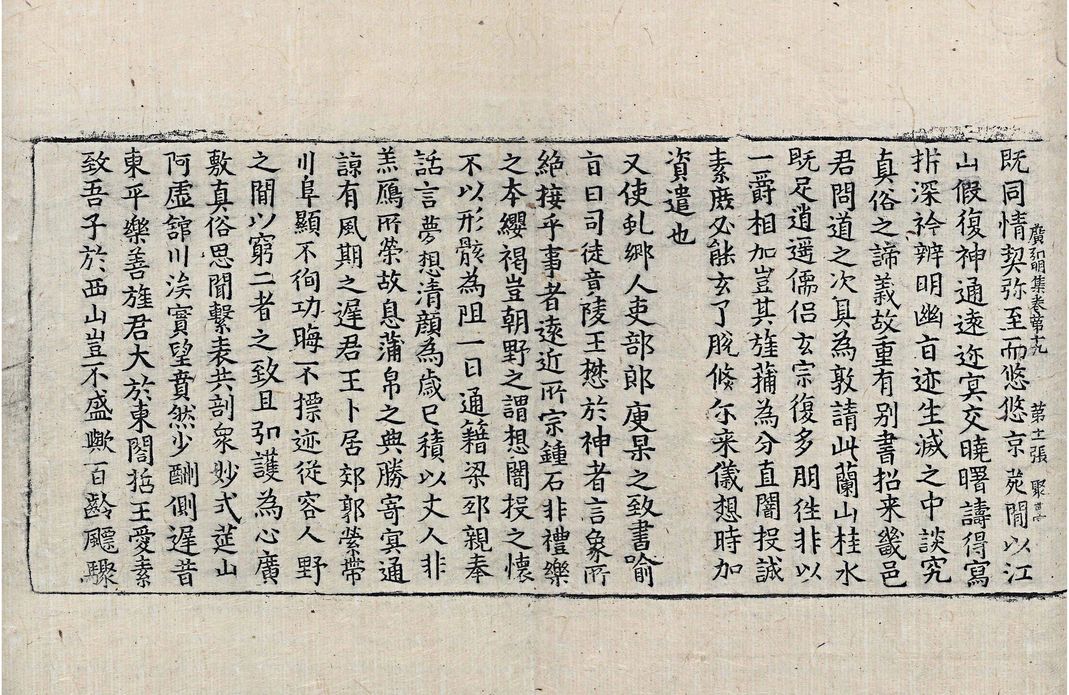 既同情契弥至而悠悠京苑閒以江
廣弘明集卷第十九 第十二張 聚
山假復神通遠迩冥交曉曙譸得寫
㭊深衿辨明幽㫖迹生滅之中談究
真俗之諦義故重有别書招来畿邑
君問道之次具為敦請此蘭山桂水
既足逍遥儒侣玄宗復多朋徃非以
一爵相加豈其旌蒲為分直闇投誠
素庻必能玄了脱倏尓来儀想時加
資遣也
又使虬鄉人吏部郎庾杲之致書喻
㫖曰司徒竟陵王懋於神者言象所
絶接乎事者遠近所宗鍾石非禮樂
之本纓褐豈朝野之謂想闇投之懷
不以形骸為阻一日通籍梁邳親奉
話言夢想清顔為歳已積以丈人非
羔鴈所榮故息蒲帛之典勝寄冥通
諒有風期之遲君王卜居郊郭縈帶
川阜顯不徇功晦不摽迹從容人野
之閒以窮二者之致且弘護為心廣
敷真俗思聞繫表共剖衆妙式莚山
阿虚舘川涘實望賁然少酬側遲昔
東平樂善旌君大於東閤哲王愛素
致吾子於西山豈不盛歟百齡飈驟